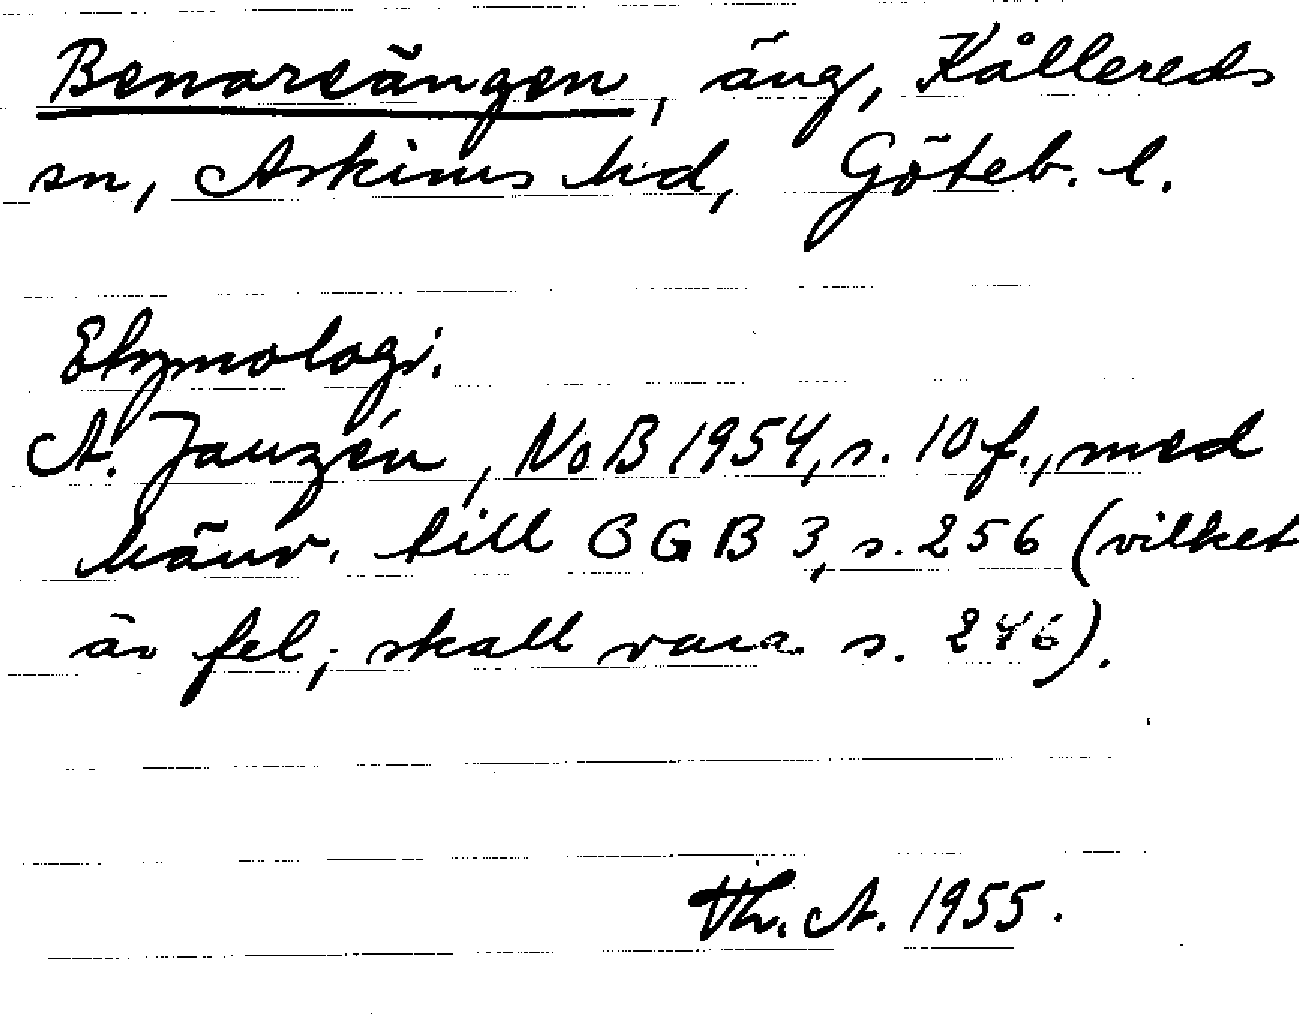 Benareängen, äng, Kållereds
sn, Askims hd, Göteb. l.
Etymologi.
A. Janzén, NoB 1954, s. 10 f., med
hänv. till OGB 3, s. 256 (vilket
är fel; skall vara s. 246).
Th. A. 1955.